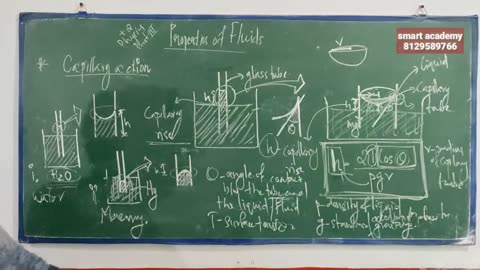 smart academy
8129589766
+2
Physics
Properties of Fluids
* Capillary action
glass tube
Liquid
Capillary tube
Capillary rise
h
h
h
θ
mg
h - capillary rise
h = 2T cos θ / ρgr
r - radius of capillary tube
i.
H2O
water
ii.
Hg
Mercury
θ - angle of contact
b/w the tube and
the liquid/fluid
T - surface tension
ρ - density of liquid
g -